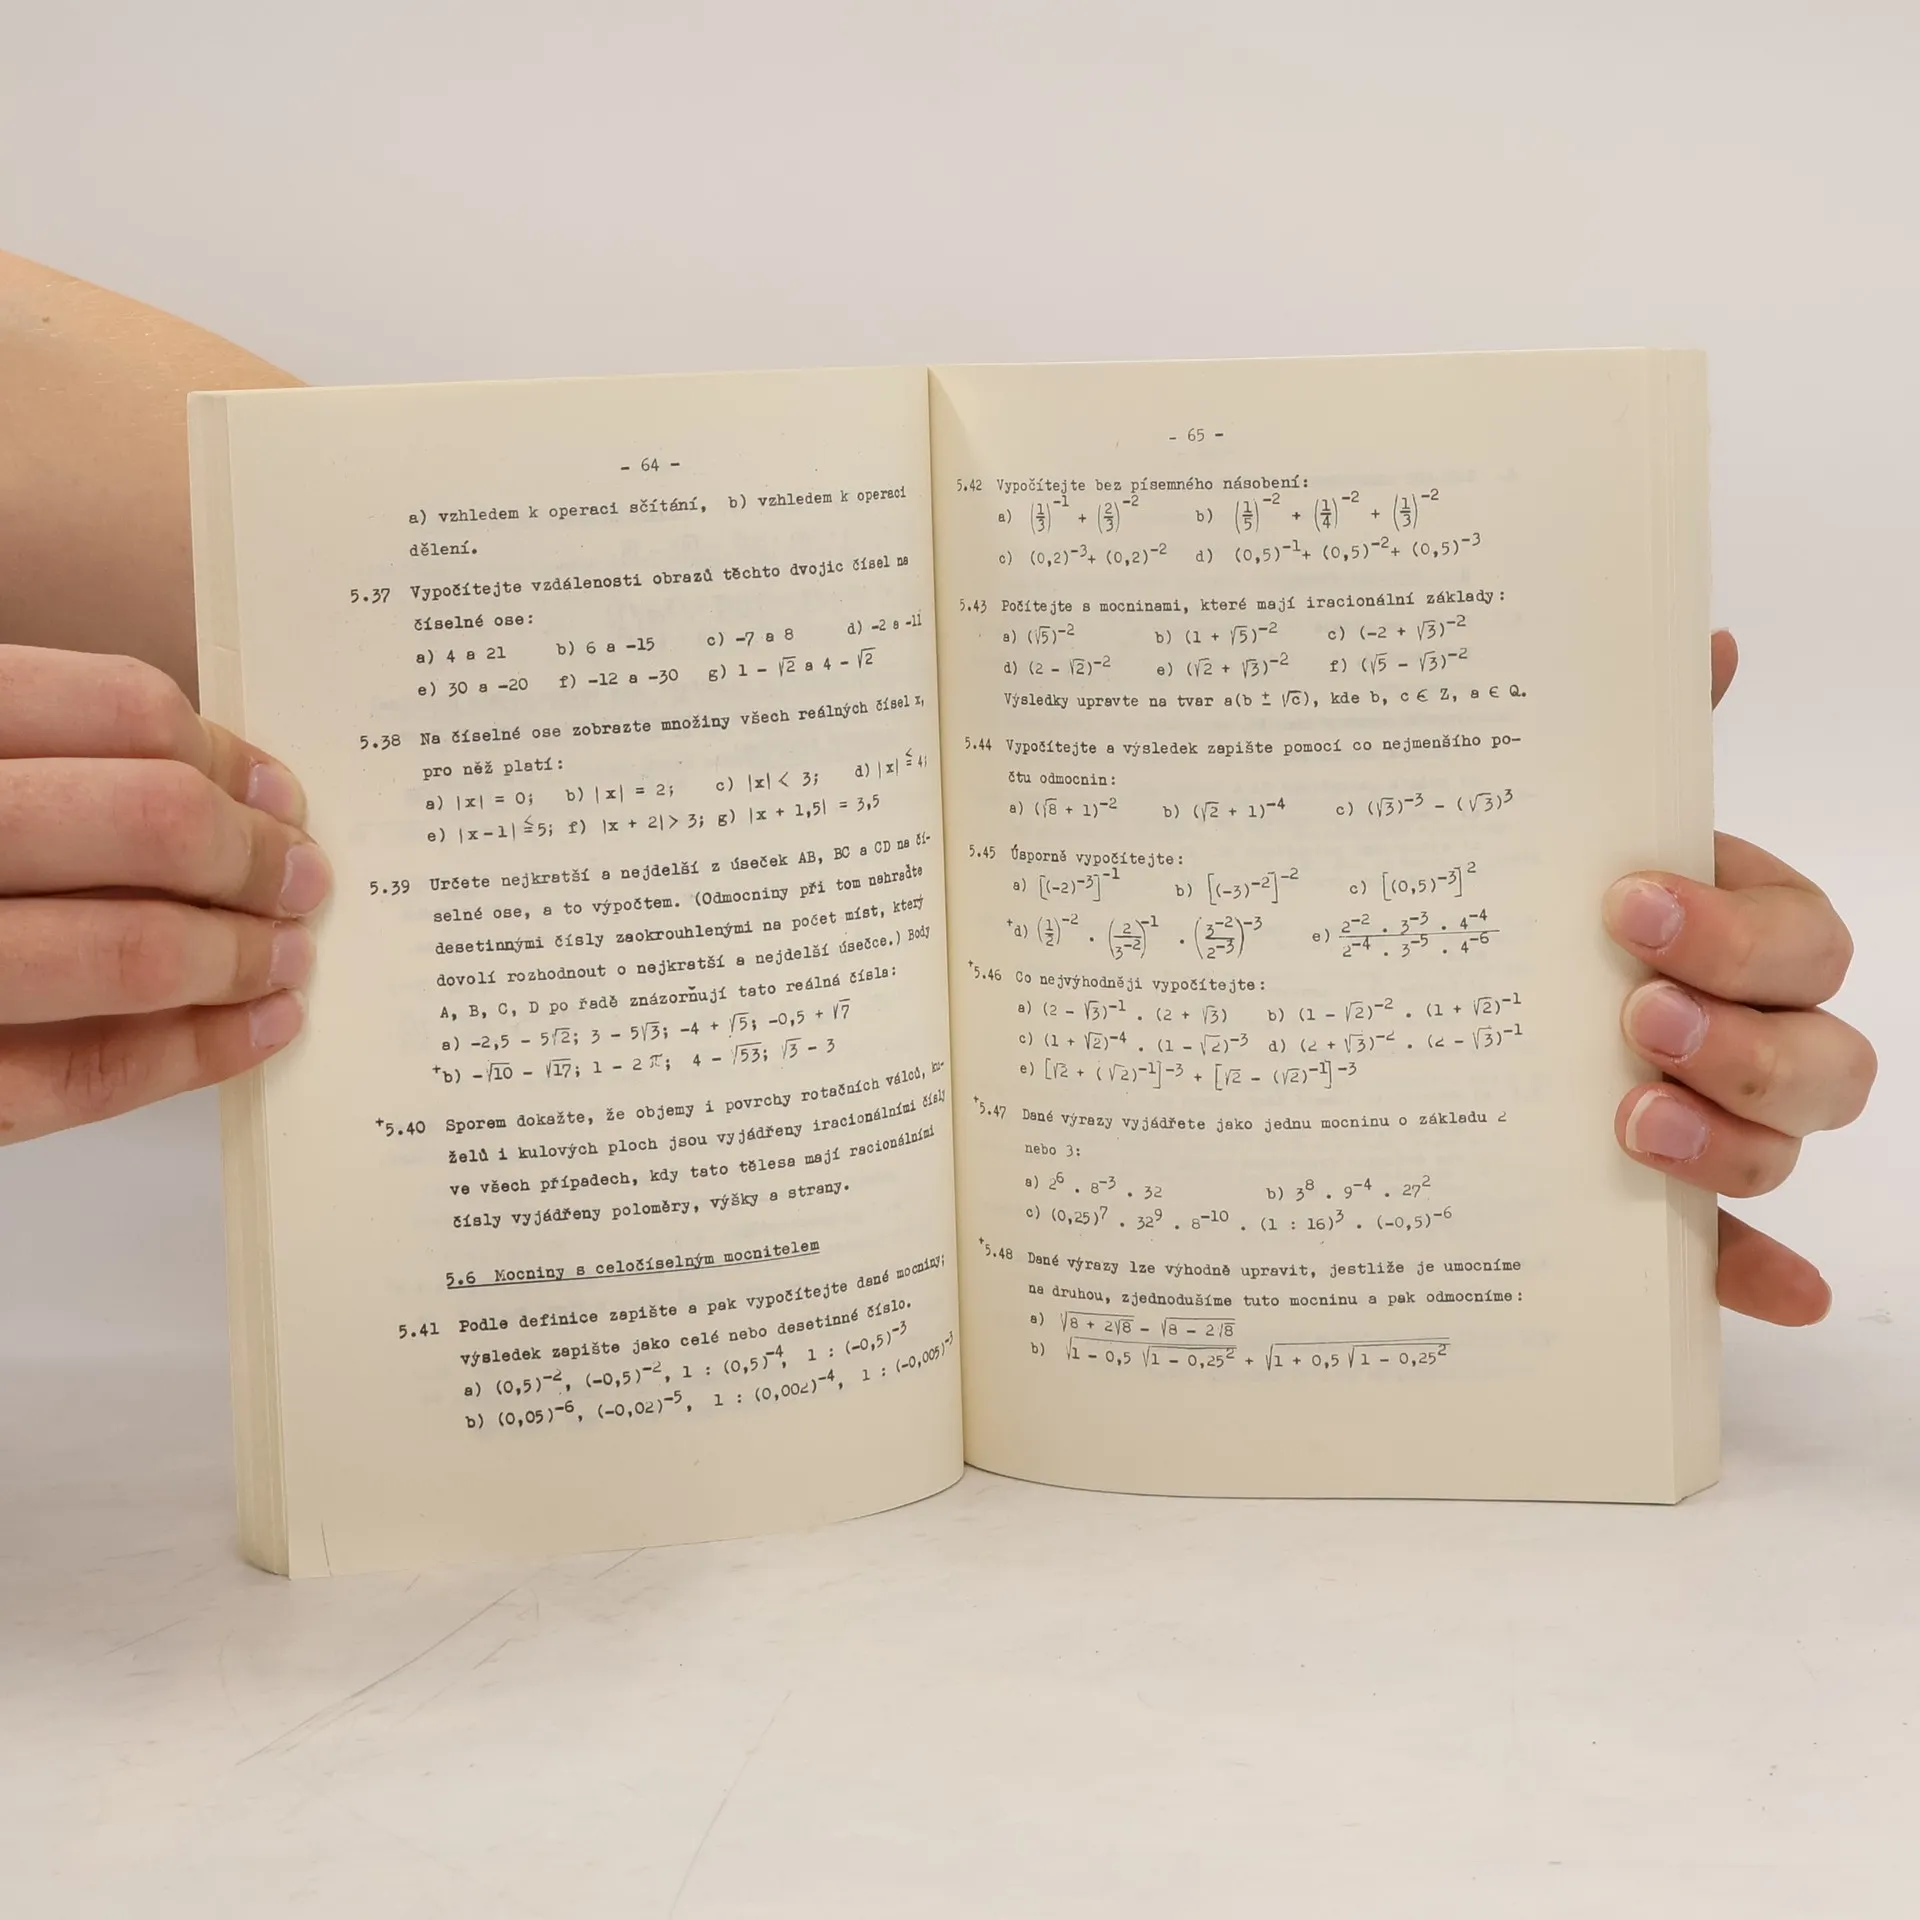 - 64 -
a) vzhledem k operaci sčítání, b) vzhledem k operaci
dělení.
5.37 Vypočítejte vzdálenosti obrazů těchto dvojic čísel na
číselné ose:
a) 4 a 21 b) 6 a -15 c) -7 a 8 d) -2 a -11
e) 30 a -20 f) -12 a -30 g) 1 - √2 a 4 - √2
5.38 Na číselné ose zobrazte množiny všech reálných čísel x,
pro něž platí:
a) |x| = 0; b) |x| = 2; c) |x| < 3; d) |x| ≦ 4;
e) |x-1| ≦ 5; f) |x + 2| > 3; g) |x + 1,5| = 3,5
5.39 Určete nejkratší a nejdelší z úseček AB, BC a CD na čí-
selné ose, a to výpočtem. (Odmocniny při tom nahraďte
desetinnými čísly zaokrouhlenými na počet míst, který
dovolí rozhodnout o nejkratší a nejdelší úsečce.) Body
A, B, C, D po řadě znázorňují tato reálná čísla:
a) -2,5 - 5√2; 3 - 5√3; -4 + √5; -0,5 + √7
+b) -√10 - √17; 1 - 2π; 4 - √53; √3 - 3
+5.40 Sporem dokažte, že objemy i povrchy rotačních válců, ku-
želů i kulových ploch jsou vyjádřeny iracionálními čísly
ve všech případech, kdy tato tělesa mají racionálními
čísly vyjádřeny poloměry, výšky a strany.
5.6 Mocniny s celočíselným mocnitelem
5.41 Podle definice zapište a pak vypočítejte dané mocniny;
výsledek zapište jako celé nebo desetinné číslo.
a) (0,5)⁻², (-0,5)⁻², 1 : (0,5)⁻⁴, 1 : (-0,5)⁻³
b) (0,05)⁻⁶, (-0,02)⁻⁵, 1 : (0,002)⁻⁴, 1 : (-0,005)⁻³
- 65 -
5.42 Vypočítejte bez písemného násobení:
a) (1/3)⁻¹ + (2/3)⁻² b) (1/5)⁻² + (1/4)⁻² + (1/3)⁻²
c) (0,2)⁻³+ (0,2)⁻² d) (0,5)⁻¹+ (0,5)⁻²+ (0,5)⁻³
5.43 Počítejte s mocninami, které mají iracionální základy:
a) (√5)⁻² b) (1 + √5)⁻² c) (-2 + √3)⁻²
d) (2 - √2)⁻² e) (√2 + √3)⁻² f) (√5 - √3)⁻²
Výsledky upravte na tvar a(b ± √c), kde b, c ∈ Z, a ∈ Q.
5.44 Vypočítejte a výsledek zapište pomocí co nejmenšího po-
čtu odmocnin:
a) (√8 + 1)⁻² b) (√2 + 1)⁻⁴ c) (√3)⁻³ - (√3)³
5.45 Úsporně vypočítejte:
a) [(-2)⁻³]⁻¹ b) [(-3)⁻²]⁻² c) [(0,5)⁻³]²
+d) (1/2)⁻² . (2/3⁻²)⁻¹ . (3⁻²/2⁻³)⁻³ e) 2⁻² . 3⁻³ . 4⁻⁴ / 2⁻⁴ . 3⁻⁵ . 4⁻⁶
+5.46 Co nejvýhodněji vypočítejte:
a) (2 - √3)⁻¹ . (2 + √3) b) (1 - √2)⁻² . (1 + √2)⁻¹
c) (1 + √2)⁻⁴ . (1 - √2)⁻³ d) (2 + √3)⁻² . (2 - √3)⁻¹
e) [√2 + (√2)⁻¹]⁻³ + [√2 - (√2)⁻¹]⁻³
+5.47 Dané výrazy vyjádřete jako jednu mocninu o základu 2
nebo 3:
a) 2⁶ . 8⁻³ . 32 b) 3⁸ . 9⁻⁴ . 27²
c) (0,25)⁷ . 32⁹ . 8⁻¹⁰ . (1 : 16)³ . (-0,5)⁻⁶
+5.48 Dané výrazy lze výhodně upravit, jestliže je umocníme
na druhou, zjednodušíme tuto mocninu a pak odmocníme:
a) √(8 + 2√8) - √(8 - 2√8)
b) √(1 - 0,5 √(1 - 0,25²)) + √(1 + 0,5 √(1 - 0,25²))